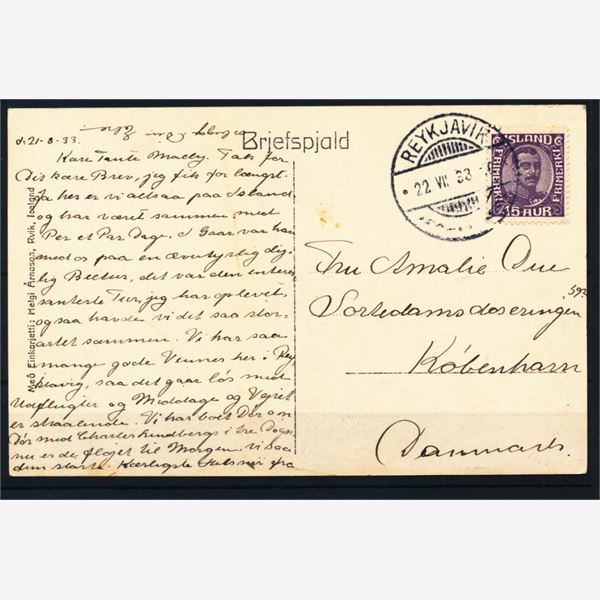 d. 21-8-33.
Brjefspjald
Kære Tante Maelly. Tak for
Dit kære Brev, jeg fik for længst
Ja her er vi altsaa paa Island
og har været sammen med
Per et Par Dage, i Gaar var han
med os paa en æventyrlig dej
lig Biltur, det var den interes
santeste Tur, jeg har oplevet,
ogsaa havde vi det saa stor
artet sammen. Vi har saa
mange gode Venner her i Rey
kjavig, saa det gaar løs med
Udflugter og Middage og Vejret
er straalende. Vi har boet Dør om
Dør med Charles Lindbergs i tre Dage
nu er de fløjet til Morgen, vi saa
dem starte. Kærligste Hilsner fra
Með Einkarjetti: Helgi Árnason, Rvík, Iceland
REYKJAVIK
22 VII 33
ÍSLAND
FRIMERKI
FRIMERKI
15 AUR
Fru Amalie Due
Sortedamsdosseringen
København
Danmark.